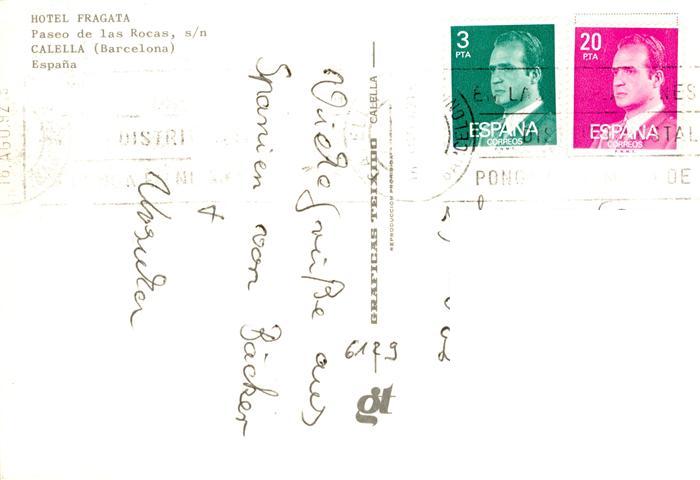 HOTEL FRAGATA
Paseo de las Rocas, s/n
CALELLA (Barcelona)
España
16 AGO. 92
DISTRI
3
PTA
ESPAÑA
CORREOS
F.N.M.T.
20
PTA
ESPAÑA
CORREOS
F.N.M.T.
EN LA
PONG
DE
Viele Grüße aus
Spanien von Bäcker
+
Ursula
GRAFICAS TEIXIDO CALELLA
REPRODUCCION PROHIBIDA
6179
gt